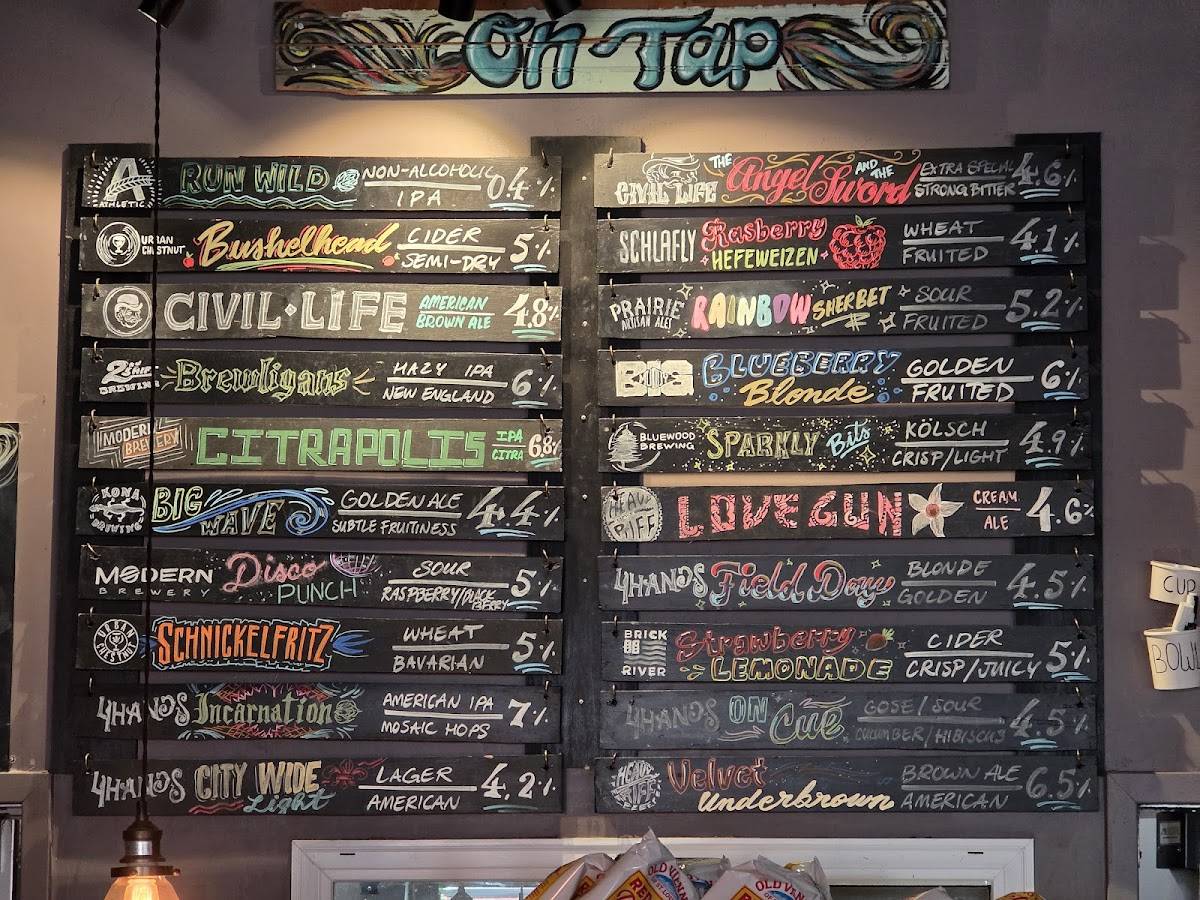 On-Tap
A
ATHLETIC
RUN WILD
NON-ALCOHOLIC
IPA
04%
URBAN
CHESTNUT
Bushelhead
CIDER
SEMI-DRY
5%
CIVIL·LIFE
AMERICAN
BROWN ALE
4.8%
2ND SHIFT
BREWING
Brewligans
HAZY IPA
NEW ENGLAND
6%
MODERN
BREWERY
CITRAPOLIS
IPA
CITRA
6.8%
KONA
BREWING
BIG
WAVE
GOLDEN ALE
SUBTLE FRUITINESS
4.4%
MODERN
BREWERY
Disco
PUNCH
SOUR
RASPBERRY/BLACK
BERRY
5%
URBAN
CHESTNUT
SCHNICKELFRITZ
WHEAT
BAVARIAN
5%
4HANDS
Incarnation
AMERICAN IPA
MOSAIC HOPS
7%
4HANDS
CITY WIDE
Light
LAGER
AMERICAN
4.2%
CIVIL LIFE
THE Angel AND THE Sword
EXTRA SPECIAL
STRONG BITTER
4.6%
SCHLAFLY
Rasberry
HEFEWEIZEN
WHEAT
FRUITED
4.1%
PRAIRIE
ARTISAN ALES
RAINBOW SHERBET
SOUR
FRUITED
5.2%
BIG
BLUEBERRY
Blonde
GOLDEN
FRUITED
6%
BLUEWOOD
BREWING
SPARKLY Bits
KÖLSCH
CRISP/LIGHT
4.9%
HEAVY
RIFF
LOVE GUN
CREAM
ALE
4.6%
4HANDS
Field Day
BLONDE
GOLDEN
4.5%
BRICK
RIVER
Strawberry
LEMONADE
CIDER
CRISP/JUICY
5%
4HANDS
ON Cue
GOSE/SOUR
CUCUMBER/HIBISCUS
4.5%
HEAVY
RIFF
Velvet
Underbrown
BROWN ALE
AMERICAN
6.5%
CUP
BOWL
OLD VIENNA
RED
OLD VIENNA